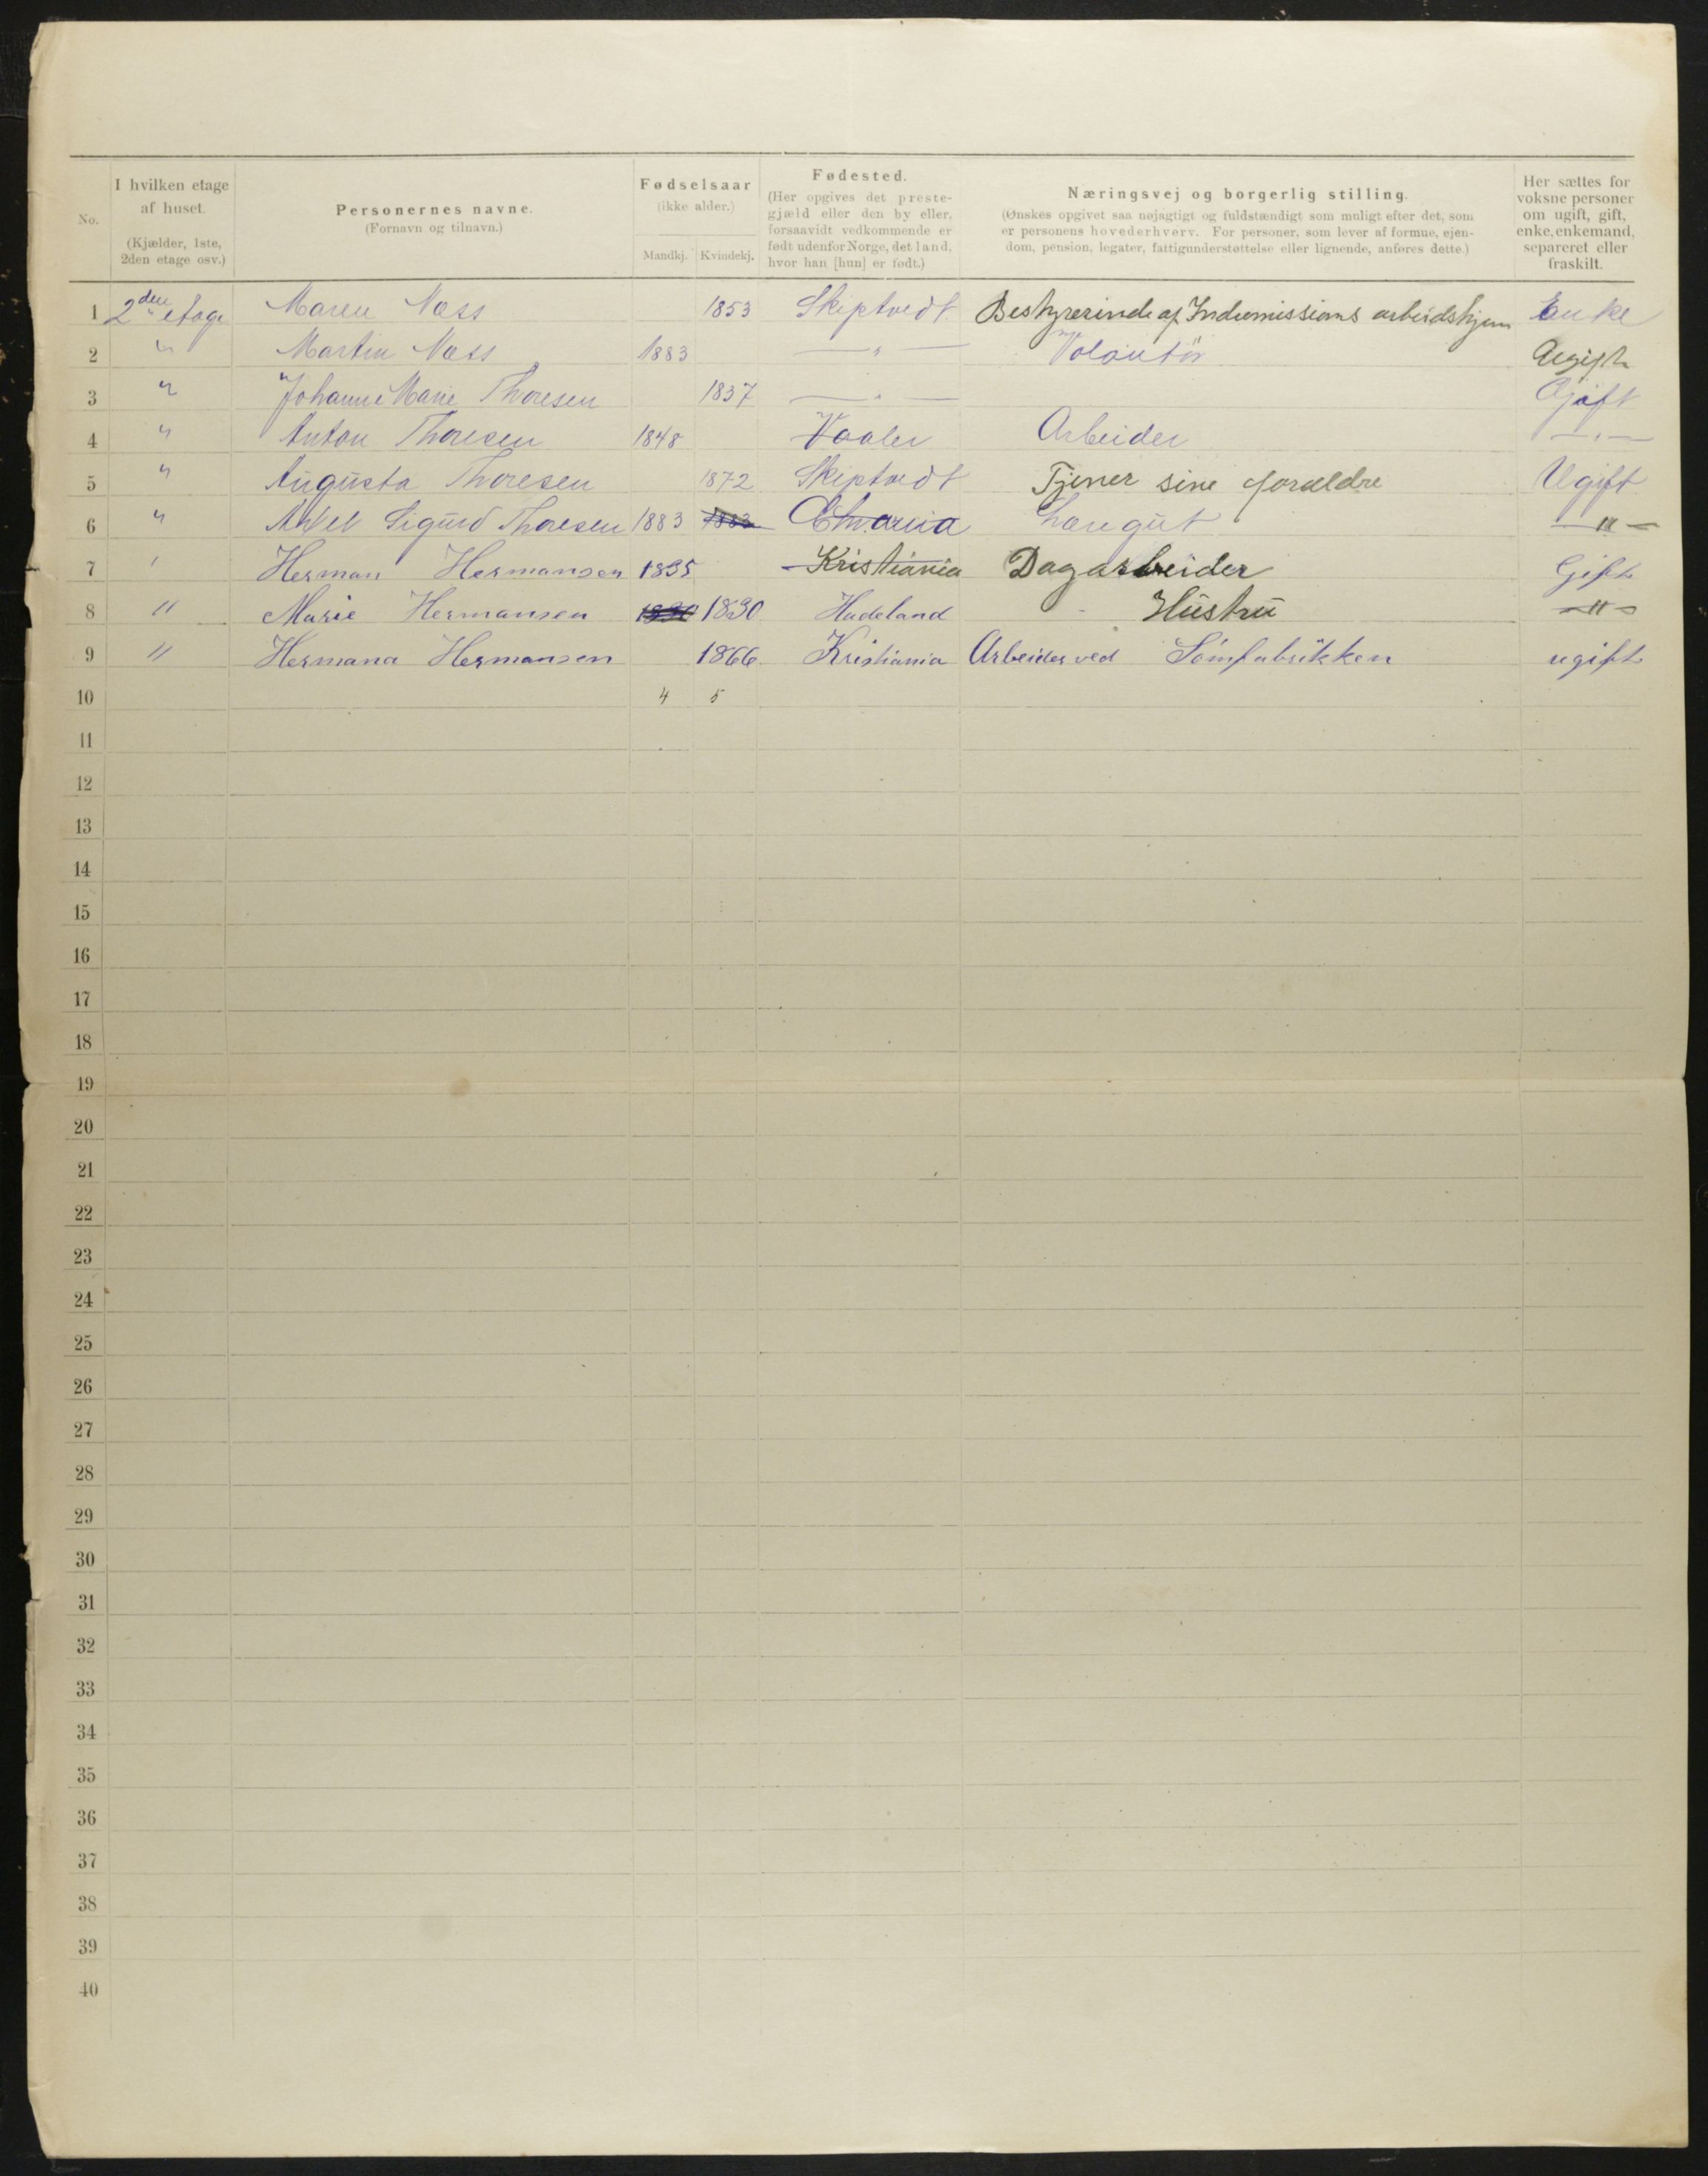 No. | I hvilken etage af huset. (Kjælder, 1ste, 2den etage osv.) | Personernes navne. (Fornavn og tilnavn.) | Fødselsaar (ikke alder.) Mandkj. | Kvindekj. | Fødested. (Her opgives det prestegjæld eller den by eller, forsaavidt vedkommende er født udenfor Norge, det land, hvor han [hun] er født.) | Næringsvej og borgerlig stilling. (Ønskes opgivet saa nøjagtigt og fuldstændigt som muligt efter det, som er personens hovederhverv. For personer, som lever af formue, ejendom, pension, legater, fattigunderstøttelse eller lignende, anføres dette.) | Her sættes for voksne personer om ugift, gift, enke, enkemand, separeret eller fraskilt.
1 | 2den etage | Maren Næss | | 1853 | Skiptvedt | Bestyrerinde af Indremissions arbeidshjem | Enke
2 | " | Martin Næss | 1883 | | —"— | Volontör | Ugift
3 | " | Johanne Marie Thoresen | | 1837 | —"— | | Gift
4 | " | Anton Thoresen | 1848 | | Vaaler | Arbeider | —"—
5 | " | Augusta Thoresen | | 1872 | Skiptvedt | Tjener sine forældre | Ugift
6 | " | Sigurd Thoresen | 1883 | 1883 | | Læregut | —"—
7 | " | Herman Hermansen | 1835 | | Kristiania | Dagarbeider | Gift
8 | " | Marie Hermansen | 1830 | 1830 | Hadeland | Hustru | —"—
9 | " | Hermana Hermansen | | 1866 | Kristiania | Arbeider ved Sömfabrikken | ugift
10 | | | 4 | 5
11
12
13
14
15
16
17
18
19
20
21
22
23
24
25
26
27
28
29
30
31
32
33
34
35
36
37
38
39
40